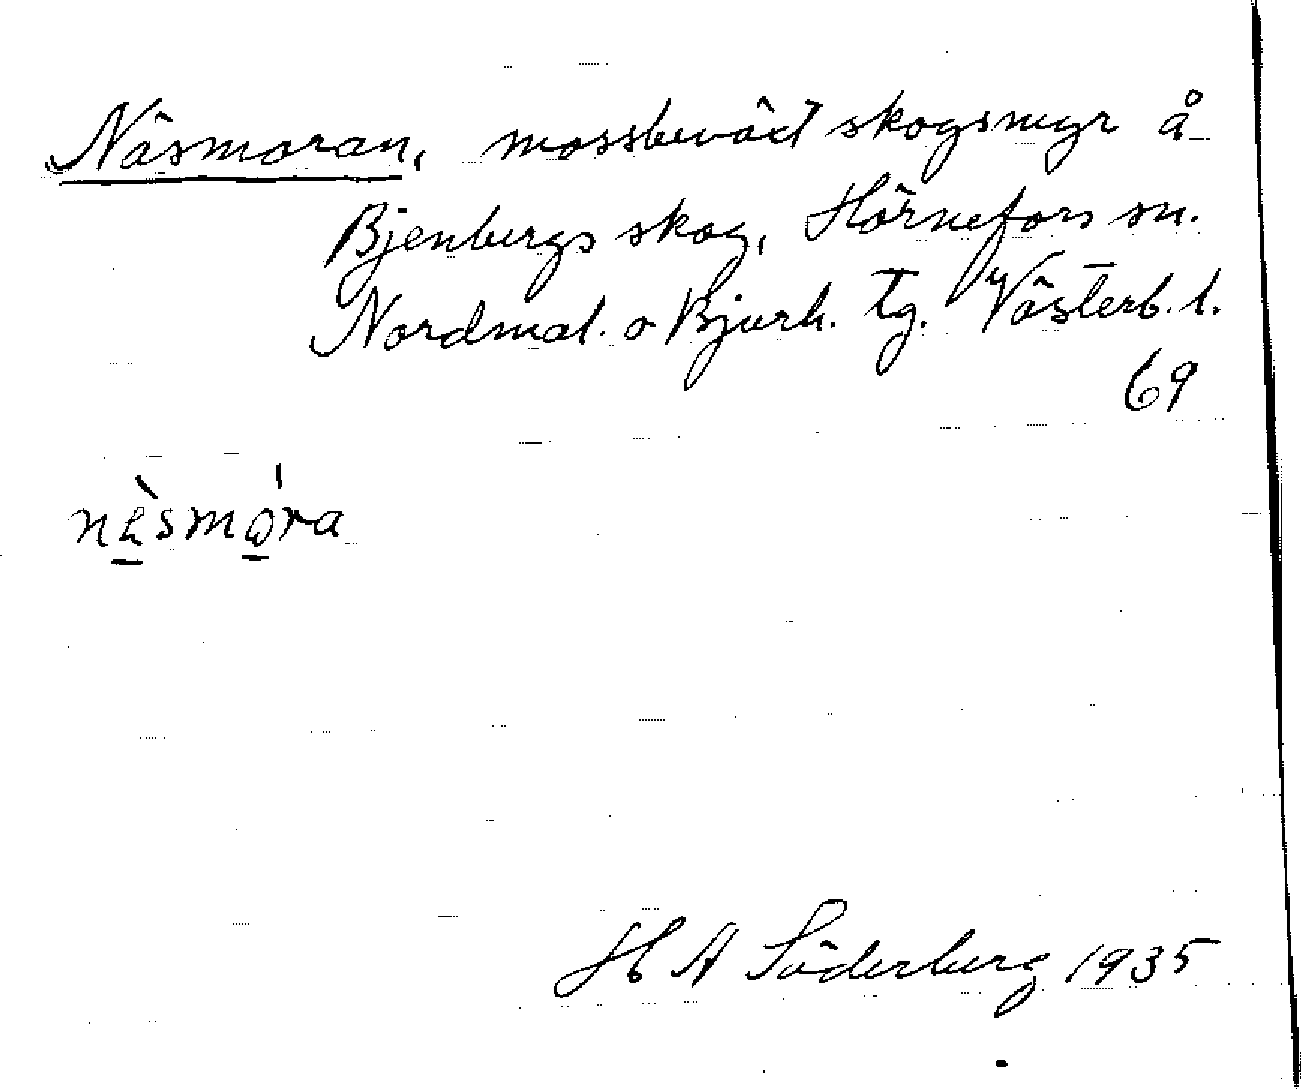 Näsmoran, mossbeväxt skogsmyr å
Bjenbergs skog, Hörnefors sn.
Nordmal. o Bjurh. tg. Västerb. l.
69
näsmòra
H A Söderberg 1935